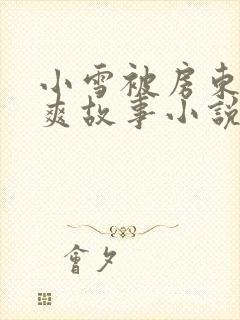 小雪被房東
爽故事小說
會夕